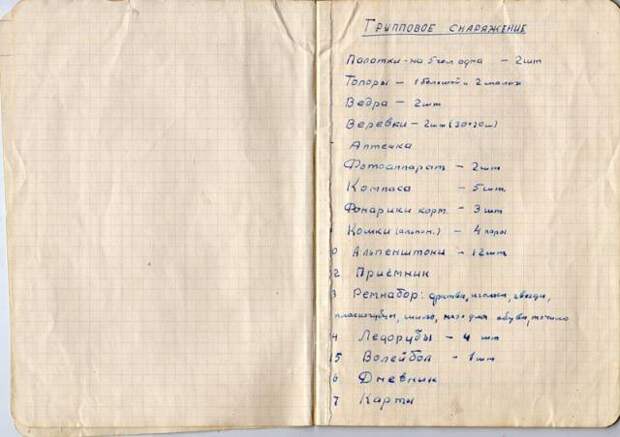 Групповое снаряжение
Палатки - на 5 чел одна - 2 шт
Топоры - 1 большой и 2 малых
Ведра - 2 шт
Веревки - 2 шт (30+20м)
Аптечка
Фотоаппарат - 2 шт
Компаса - 5 шт.
Фонарики карм. - 3 шт
Кошки (альпин.) - 4 пары
0 Альпенштоки - 12 шт
2 Приёмник
3 Ремнабор: дратва, иголки, гвозди,
плоскогубцы, шило, для обуви, точило
4 Ледорубы - 4 шт
15 Волейбол - 1 шт
6 Дневник
7 Карты